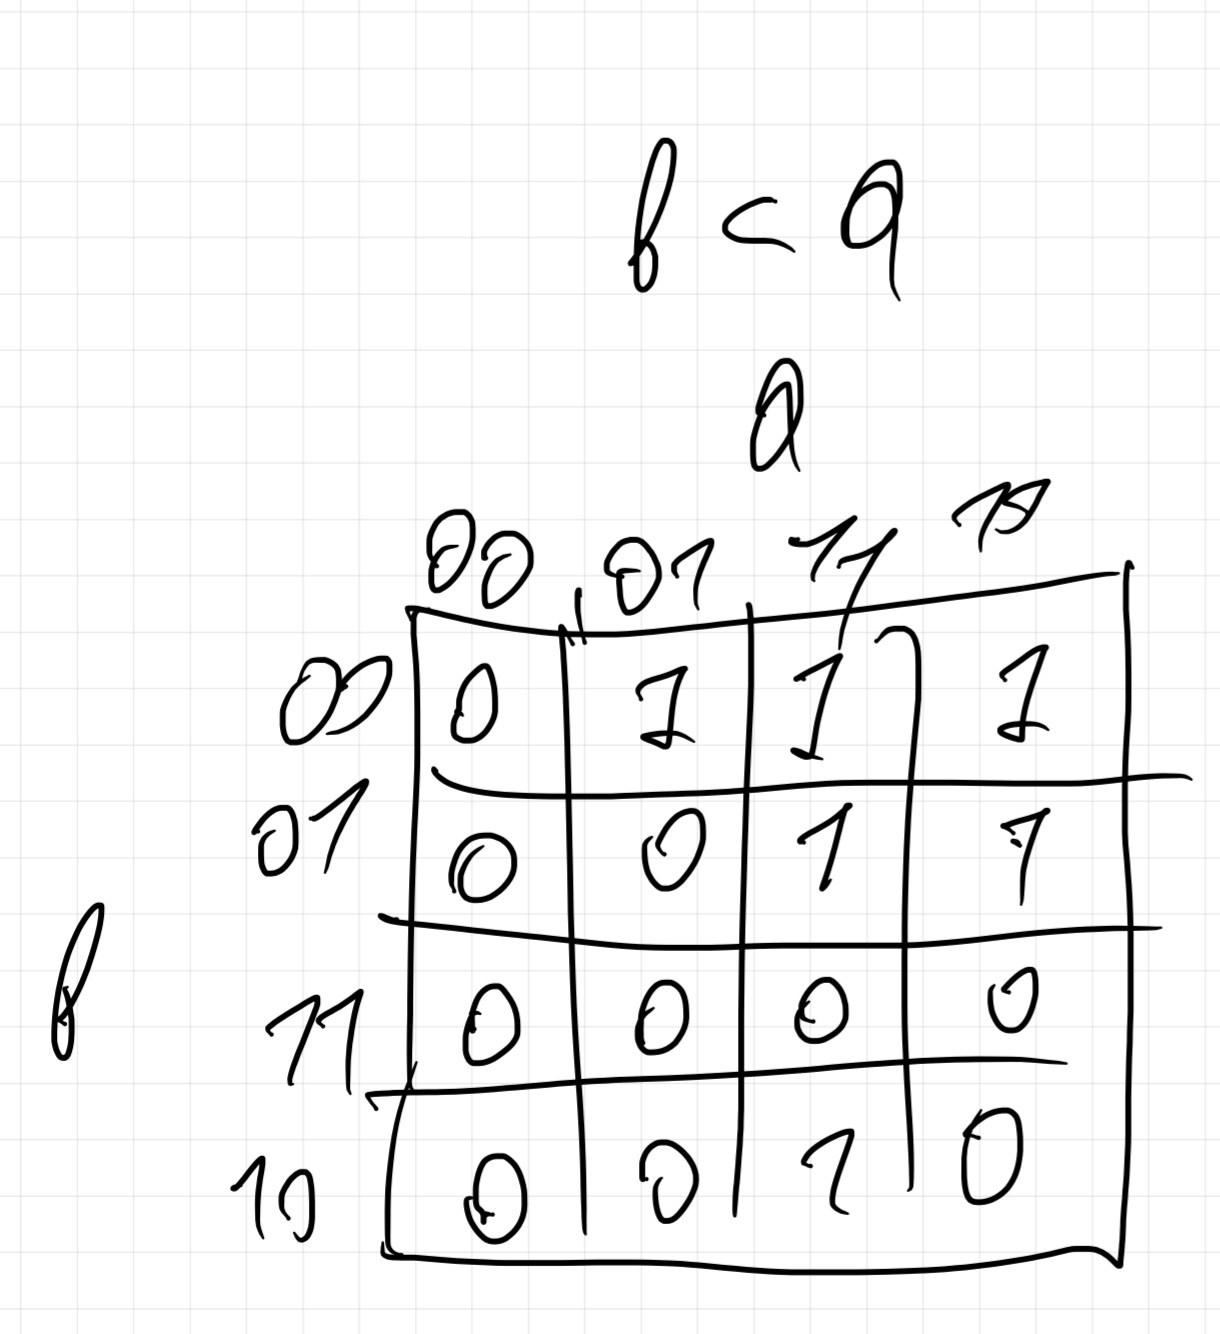 b < a
a
00 01 11 10
00 0 1 1 1
01 0 0 1 1
b
11 0 0 0 0
10 0 0 1 0